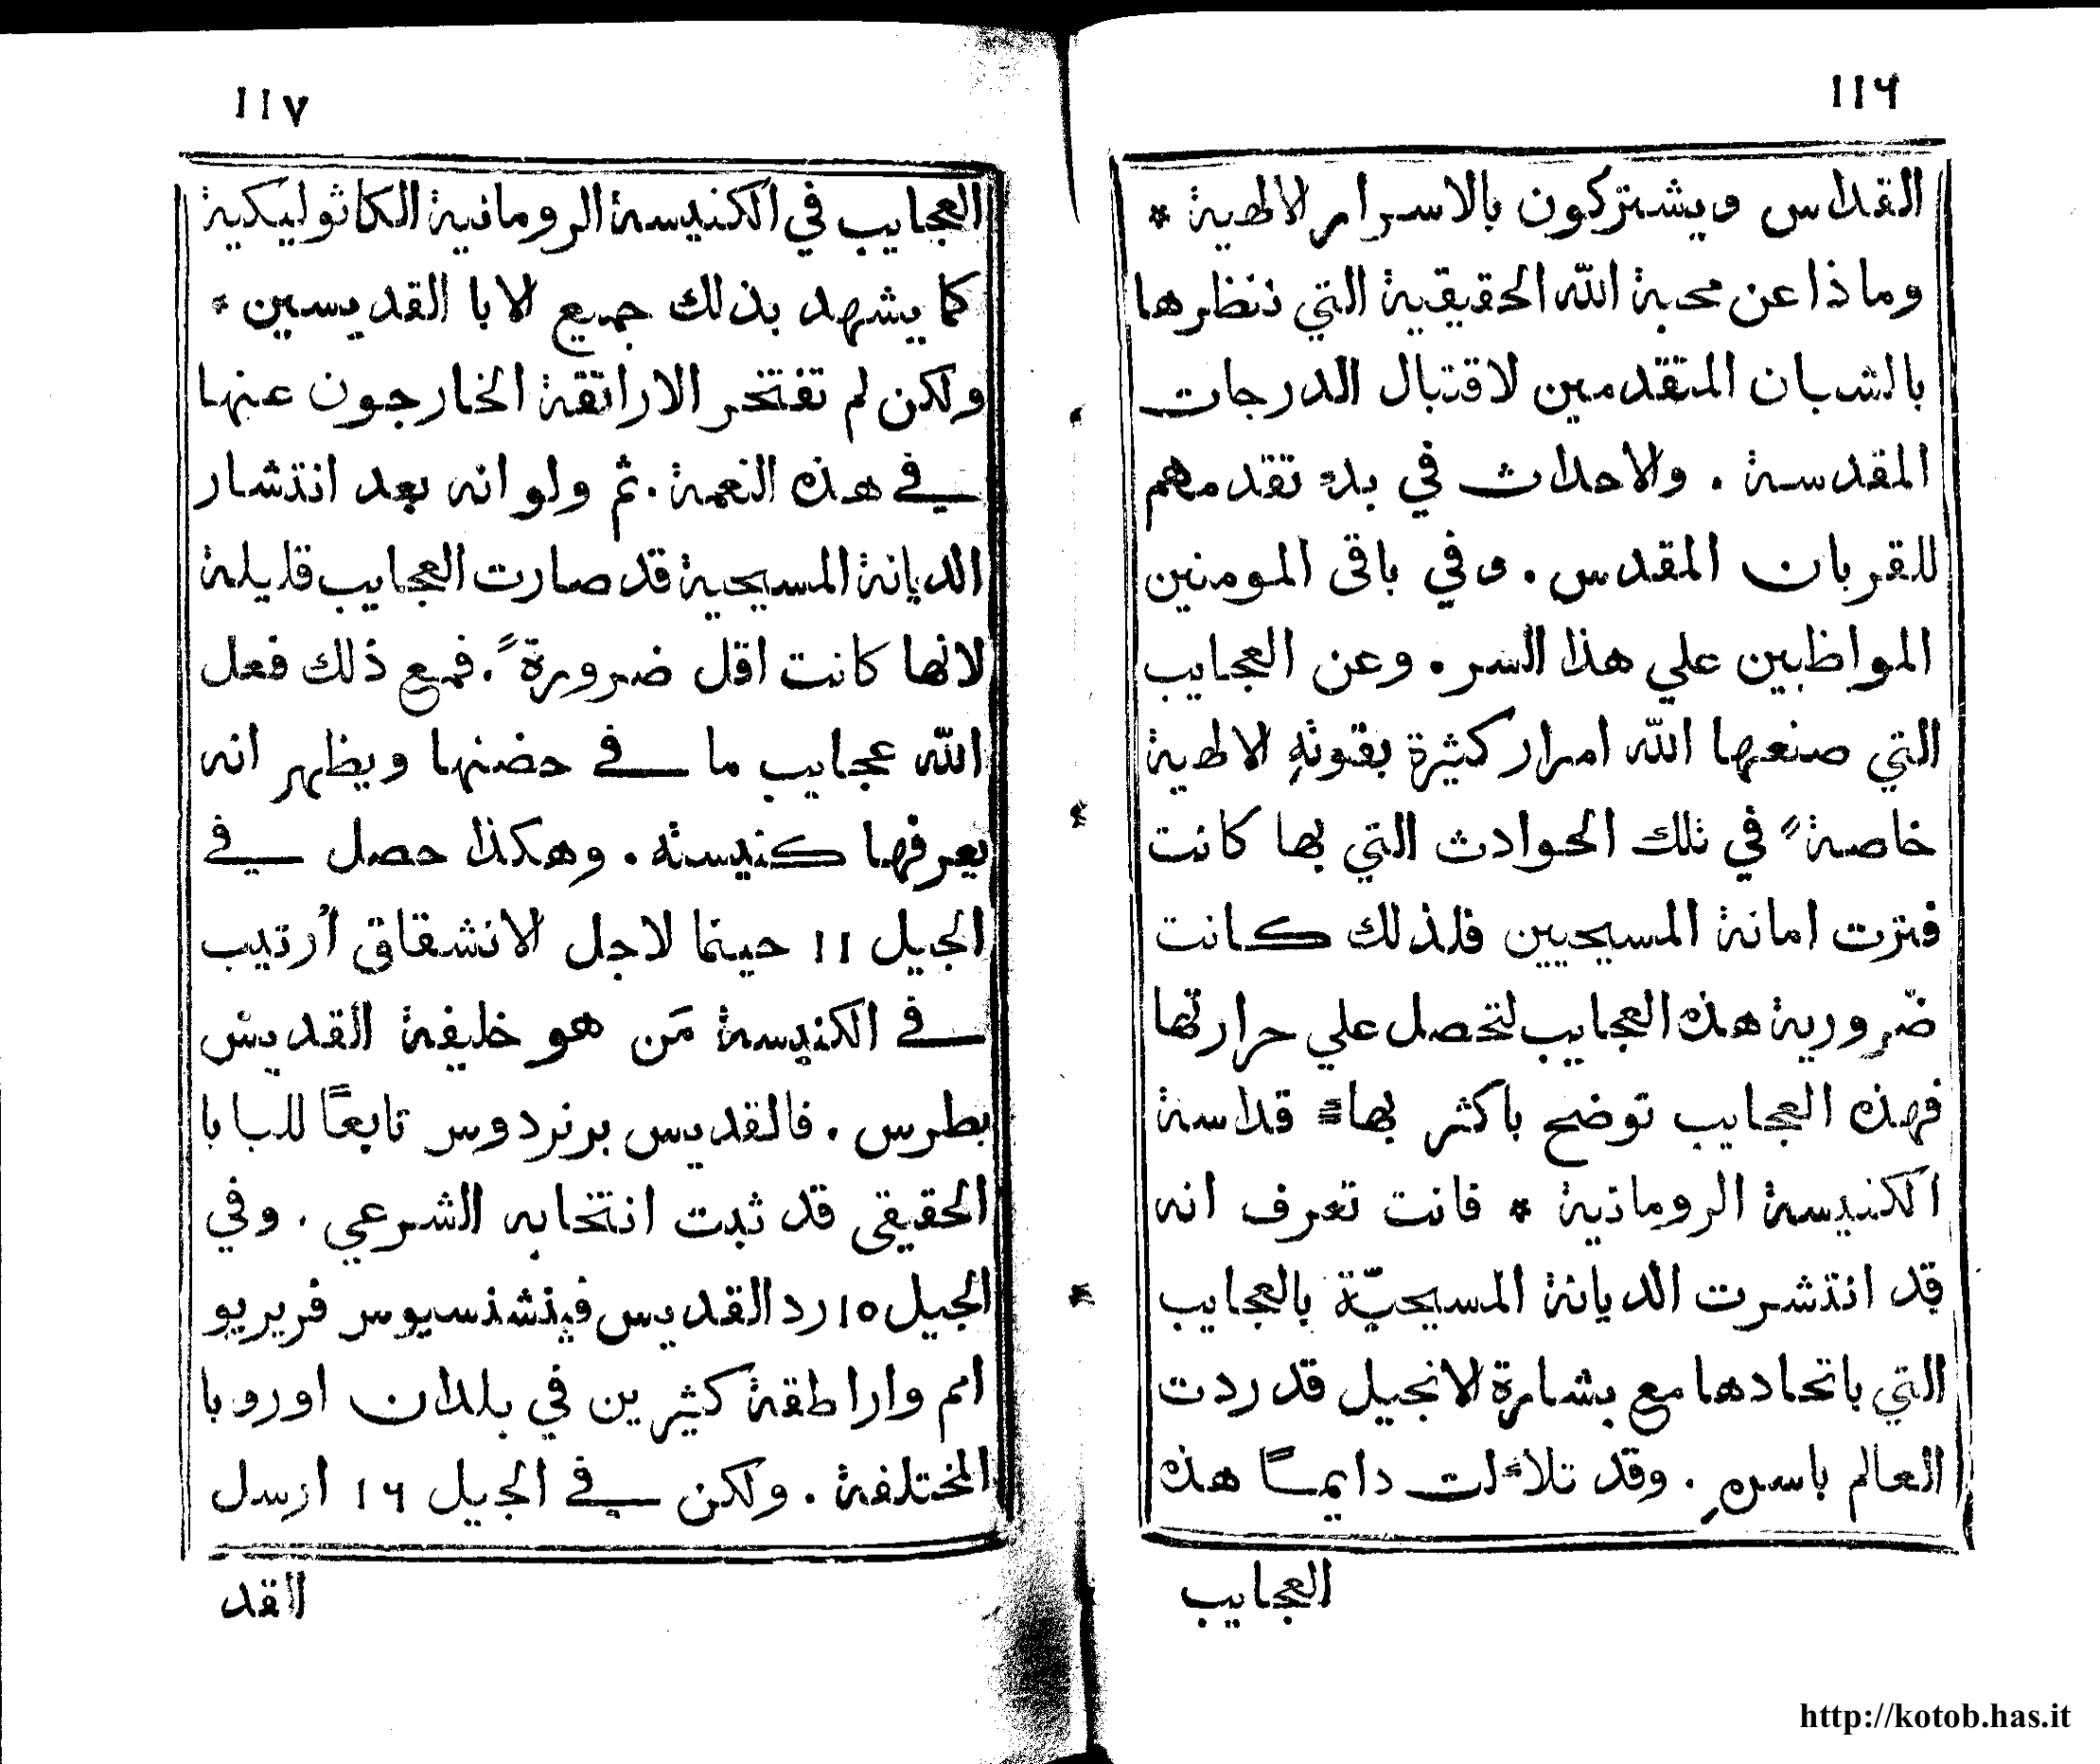 ١١٦
القداس ويشتركون بالاسرار الالهية *
وماذا عن محبة اللّه الحقيقية التي ننظرها
بالشبان المتقدمين لاقتبال الدرجات
المقدسة . والاحداث في بدء تقدمهم
للقربان المقدس . وفي باقى المومنين
المواظبين علي هذا السر . وعن العجايب
التي صنعها اللّه امرار كثيرة بقوته الالهية
خاصةً في تلك الحوادث التي بها كانت
فترت امانة المسيحيين فلذلك كانت
ضرورية هذه العجايب لتحصل علي حرارتها
فهذه العجايب توضح باكثر بهاءً قداسة
الكنيسة الرومانية * فانت تعرف انه
قد انتشرت الديانة المسيحيّة بالعجايب
التي باتحادها مع بشارة الانجيل قد ردت
العالم باسرهِ . وقد تلاءلت دايمـًا هذه
العجايب
١١٧
العجايب في الكنيسة الرومانية الكاثوليكية
كما يشهد بذلك جميع الابا القديسين *
ولكن لم تفتخر الاراتقة الخارجون عنها
في هذه النعمة . ثم ولو انه بعد انتشار
الديانة المسيحية قد صارت العجايب قليلة
لانها كانت اقل ضرورةً . فمع ذلك فعل
اللّه عجايب ما في حضنها ويظهر انه
يعرفها كنيسته . وهكذا حصل في
الجيل ١١ حينما لاجل الانشقاق أرتيب
في الكنيسة مَن هو خليفة القديس
بطرس . فالقديس برنردوس تابعًا للبابا
الحقيقى قد ثبت انتخابه الشرعي . وفي
الجيل ١٥ رد القديس فينشنسيوس فريريو
امم واراطقة كثيرين في بلدان اوروبا
المختلفة . ولكن في الجيل ١٦ ارسل
القد
http://kotob.has.it